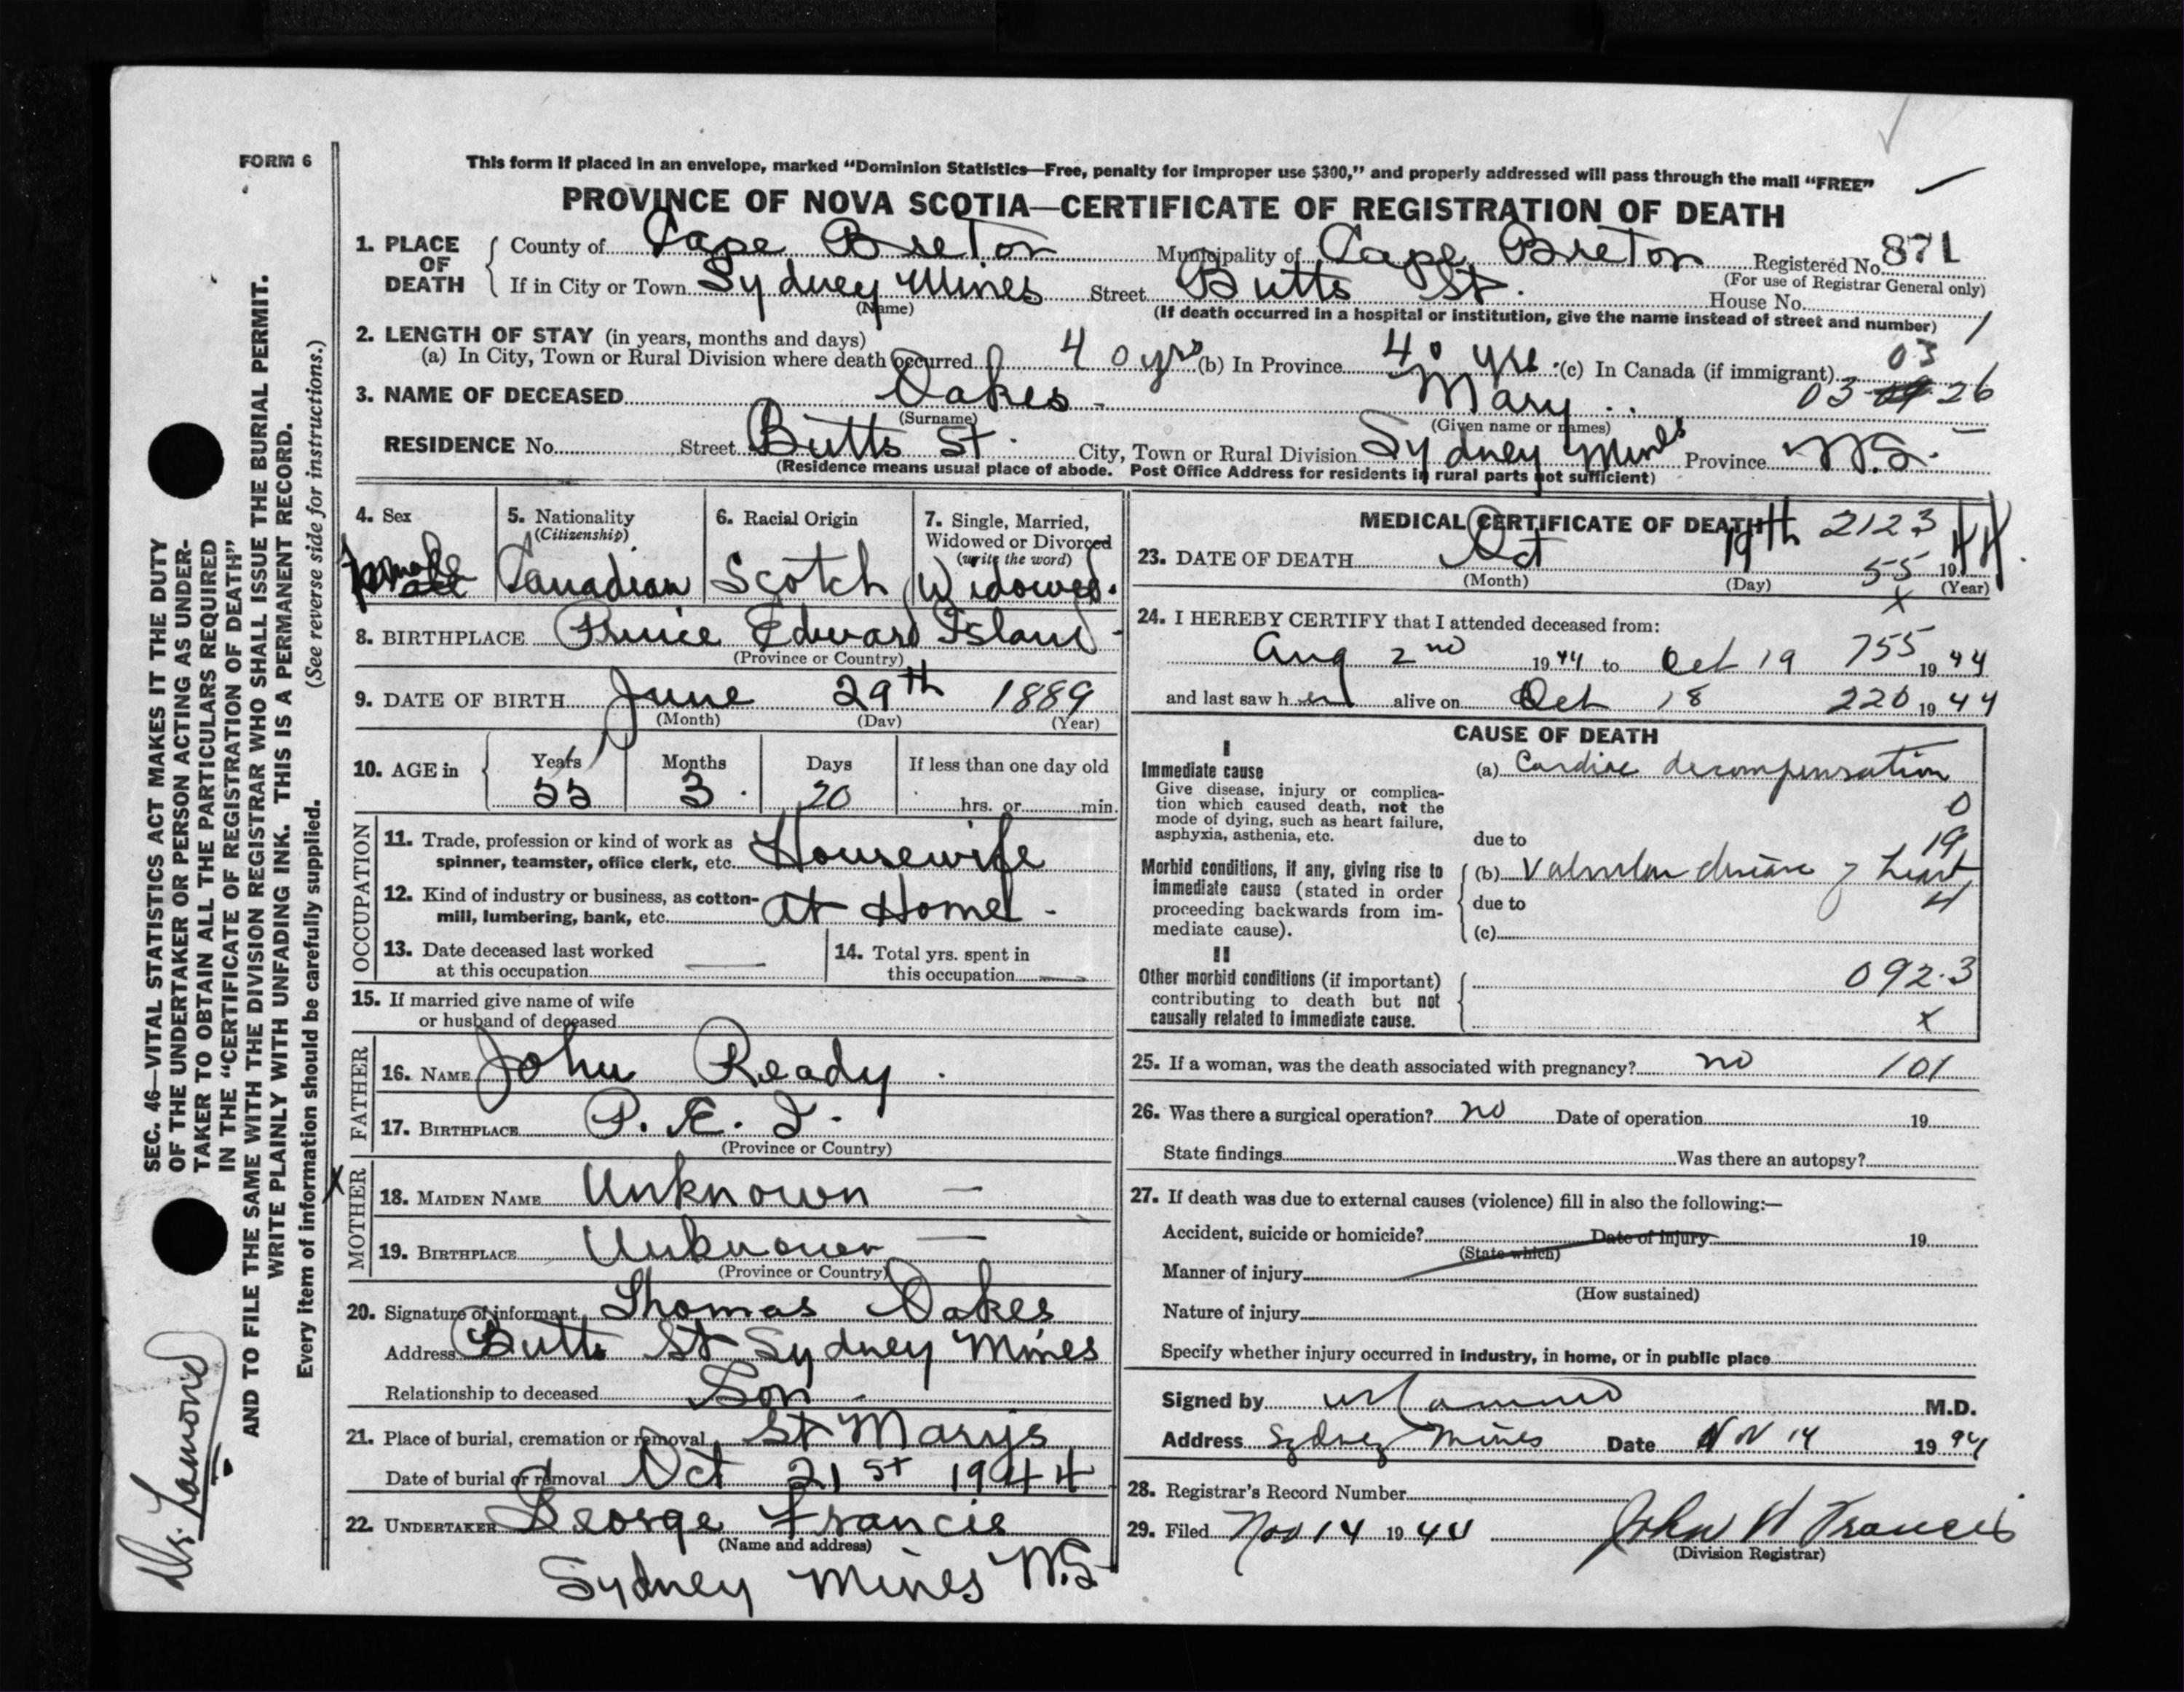 FORM 6
This form if placed in an envelope, marked “Dominion Statistics—Free, penalty for improper use $300,” and properly addressed will pass through the mail “FREE”
PROVINCE OF NOVA SCOTIA—CERTIFICATE OF REGISTRATION OF DEATH
1. PLACE OF DEATH County of Cape Breton Municipality of Cape Breton Registered No. 871
(For use of Registrar General only)
If in City or Town Sydney Mines Street Butts St. House No.
(Name) (If death occurred in a hospital or institution, give the name instead of street and number) 1
2. LENGTH OF STAY (in years, months and days)
(a) In City, Town or Rural Division where death occurred 40 yrs (b) In Province 40 yrs (c) In Canada (if immigrant) 03
3. NAME OF DECEASED Oakes Mary 03 26
(Surname) (Given name or names)
RESIDENCE No. Street Butts St. City, Town or Rural Division Sydney Mines Province N.S.
(Residence means usual place of abode. Post Office Address for residents in rural parts not sufficient)
4. Sex Female
5. Nationality (Citizenship) Canadian
6. Racial Origin Scotch
7. Single, Married, Widowed or Divorced (write the word) Widowed.
8. BIRTHPLACE Prince Edward Island
(Province or Country)
9. DATE OF BIRTH June 29th 1889
(Month) (Day) (Year)
10. AGE in Years Months Days If less than one day old
55 3 20 hrs. or min.
OCCUPATION
11. Trade, profession or kind of work as spinner, teamster, office clerk, etc. Housewife
12. Kind of industry or business, as cotton-mill, lumbering, bank, etc. at Home
13. Date deceased last worked at this occupation —
14. Total yrs. spent in this occupation —
15. If married give name of wife or husband of deceased
FATHER
16. NAME John Ready
17. BIRTHPLACE P. E. I.
(Province or Country)
MOTHER
X
18. MAIDEN NAME Unknown —
19. BIRTHPLACE Unknown —
(Province or Country)
20. Signature of informant Thomas Oakes
Address Butts St Sydney Mines
Relationship to deceased Son
21. Place of burial, cremation or removal St Marys
Date of burial or removal Oct 21st 1944
22. UNDERTAKER George Francis
(Name and address)
Sydney Mines N.S
MEDICAL CERTIFICATE OF DEATH 2123
23. DATE OF DEATH Oct 19th 55 1944.
(Month) (Day) x (Year)
24. I HEREBY CERTIFY that I attended deceased from:
Aug 2nd 1944 to Oct 19 755 1944
and last saw her alive on Oct 18 220 1944
CAUSE OF DEATH
I
Immediate cause
Give disease, injury or complication which caused death, not the mode of dying, such as heart failure, asphyxia, asthenia, etc.
(a) Cardiac decompensation
0
due to 19
Morbid conditions, if any, giving rise to immediate cause (stated in order proceeding backwards from immediate cause).
(b) Valvular disease of heart
due to 4
(c)
II
Other morbid conditions (if important) contributing to death but not causally related to immediate cause.
092.3
x
25. If a woman, was the death associated with pregnancy? no 101
26. Was there a surgical operation? no Date of operation 19
State findings Was there an autopsy?
27. If death was due to external causes (violence) fill in also the following:—
Accident, suicide or homicide? Date of injury 19
(State which)
Manner of injury
(How sustained)
Nature of injury
Specify whether injury occurred in industry, in home, or in public place
Signed by M.D.
Address Sydney Mines Date Nov 14 1944
28. Registrar's Record Number
29. Filed Nov 14 1944 John W Francis
(Division Registrar)
SEC. 46—VITAL STATISTICS ACT MAKES IT THE DUTY
OF THE UNDERTAKER OR PERSON ACTING AS UNDER-
TAKER TO OBTAIN ALL THE PARTICULARS REQUIRED
IN THE “CERTIFICATE OF REGISTRATION OF DEATH”
AND TO FILE THE SAME WITH THE DIVISION REGISTRAR WHO SHALL ISSUE THE BURIAL PERMIT.
WRITE PLAINLY WITH UNFADING INK. THIS IS A PERMANENT RECORD.
Every item of information should be carefully supplied. (See reverse side for instructions.)
Dr. Lamond